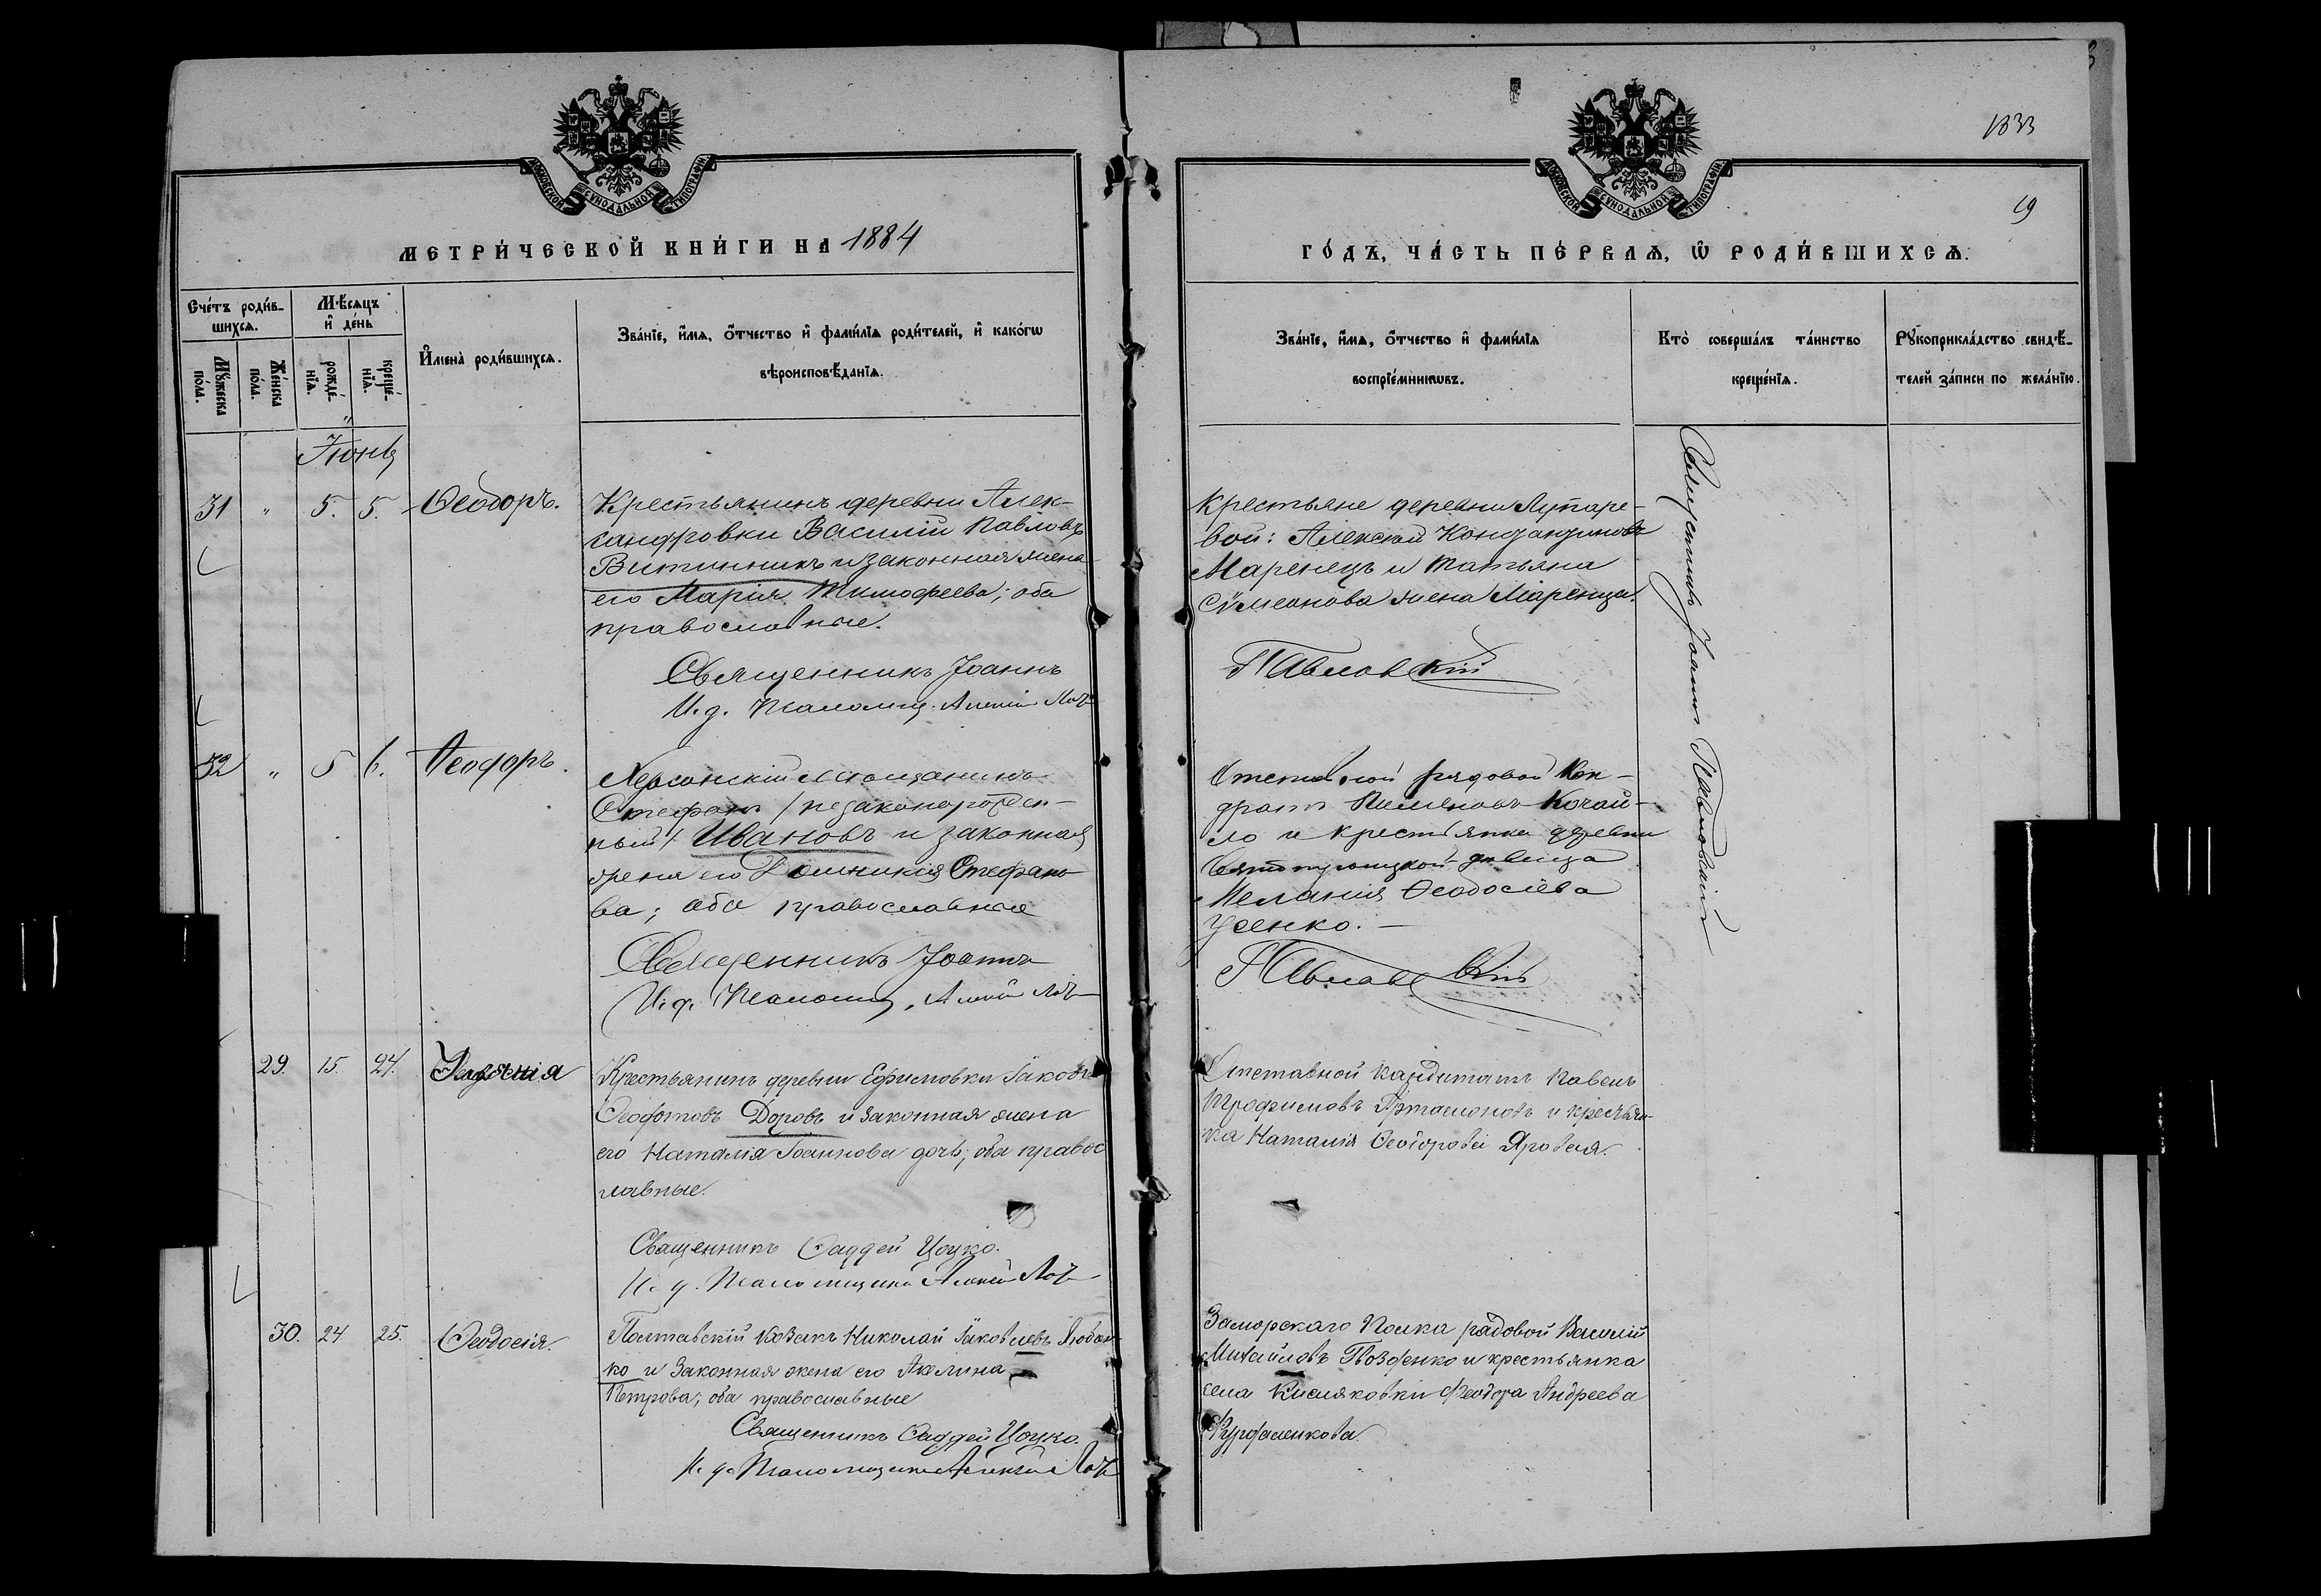 МОСКОВСКОЙ СѴНОДАЛЬНОЙ ТИПОГРАФІИ
МЕТРИ́ЧЕСКОЙ КНИ́ГИ НА 1884
Сче́тъ роди́в-
шихсѧ.
Мѣ́сѧцъ
и҆ де́нь
Мꙋ́жеска
по́ла.
Же́нска
по́ла.
рожде́-
нїѧ.
креще́-
нїѧ.
И҆мена̀ роди́вшихсѧ.
Зва́нїе, и҆́мѧ, ѻ҆́тчество и҆ фамилїѧ роди́телей, и҆ како́гѡ
вѣроисповѣ́данїѧ.
Іюнь
31 " 5. 5. Ѳеодоръ.
Крестьянинъ деревни Алек-
сандровки Василій Павловъ
Витинникъ и законная жена
его Марія Тимофеева; оба
православные.
Священникъ Іоаннъ
И. д. Псаломщ. Алексій
32 " 5 6. Ѳеодоръ.
Херсонскій мѣщанинъ
Стефанъ /незаконорожден-
ный/ Ивановъ и законная
жена его Домникія Стефано-
ва; оба православные
Священникъ Іоаннъ
И. д. Псаломщ. Алексій
29. 15. 24.
Крестьянинъ деревни Ефимовки Іаковъ
Ѳеофотовъ Доровъ и законная жена
его Наталія Іоаннова дочь; оба правос
лавные.
Священникъ Ѳаддей Цоцко.
И. д. Псаломщика Алексій
30. 24 25. Ѳеодосія.
Полтавскій козакъ Николай Іаковлевъ
ко и законная жена его Акилина
Петрова; оба православные
Священникъ Ѳаддей Цоцко.
И. д. Псаломщика Алексій
1833
19
МОСКОВСКОЙ СѴНОДАЛЬНОЙ ТИПОГРАФІИ
ГО́ДЪ, ЧА́СТЬ ПЕ́РВАѦ, Ѡ҆ РОДИ́ВШИХСѦ.
Зва́нїе, и҆́мѧ, ѻ҆́тчество и҆ фами́лїѧ
воспрїе́мникѡвъ.
Кто̀ соверша́лъ та́инство
креще́нїѧ.
Рꙋкоприкла́дство свидѣ́-
телей за́писи по жела́нїю.
Крестьяне деревни Лупаре-
вой: Алексій
Маренецъ и Татьяна
Сѵмеонова жена Маренца.
Павловскій
Отставной рядовой Кон-
дратъ Пименовъ Кочай-
ло и крестьянка деревни
Святотроицкой девица
Меланія Ѳеодосіева
Усенко.
Павловскій
Отставной кандитатъ Павелъ
Трофимовъ Артамоновъ и крестьян-
ка Наталія Ѳеодорова Яровая.
Заморскаго Полка рядовой Василій
Михайловъ Гвозденко и крестьянка
села Кисляковки Ѳеодора Андреева
Священникъ Іоаннъ Павловскій